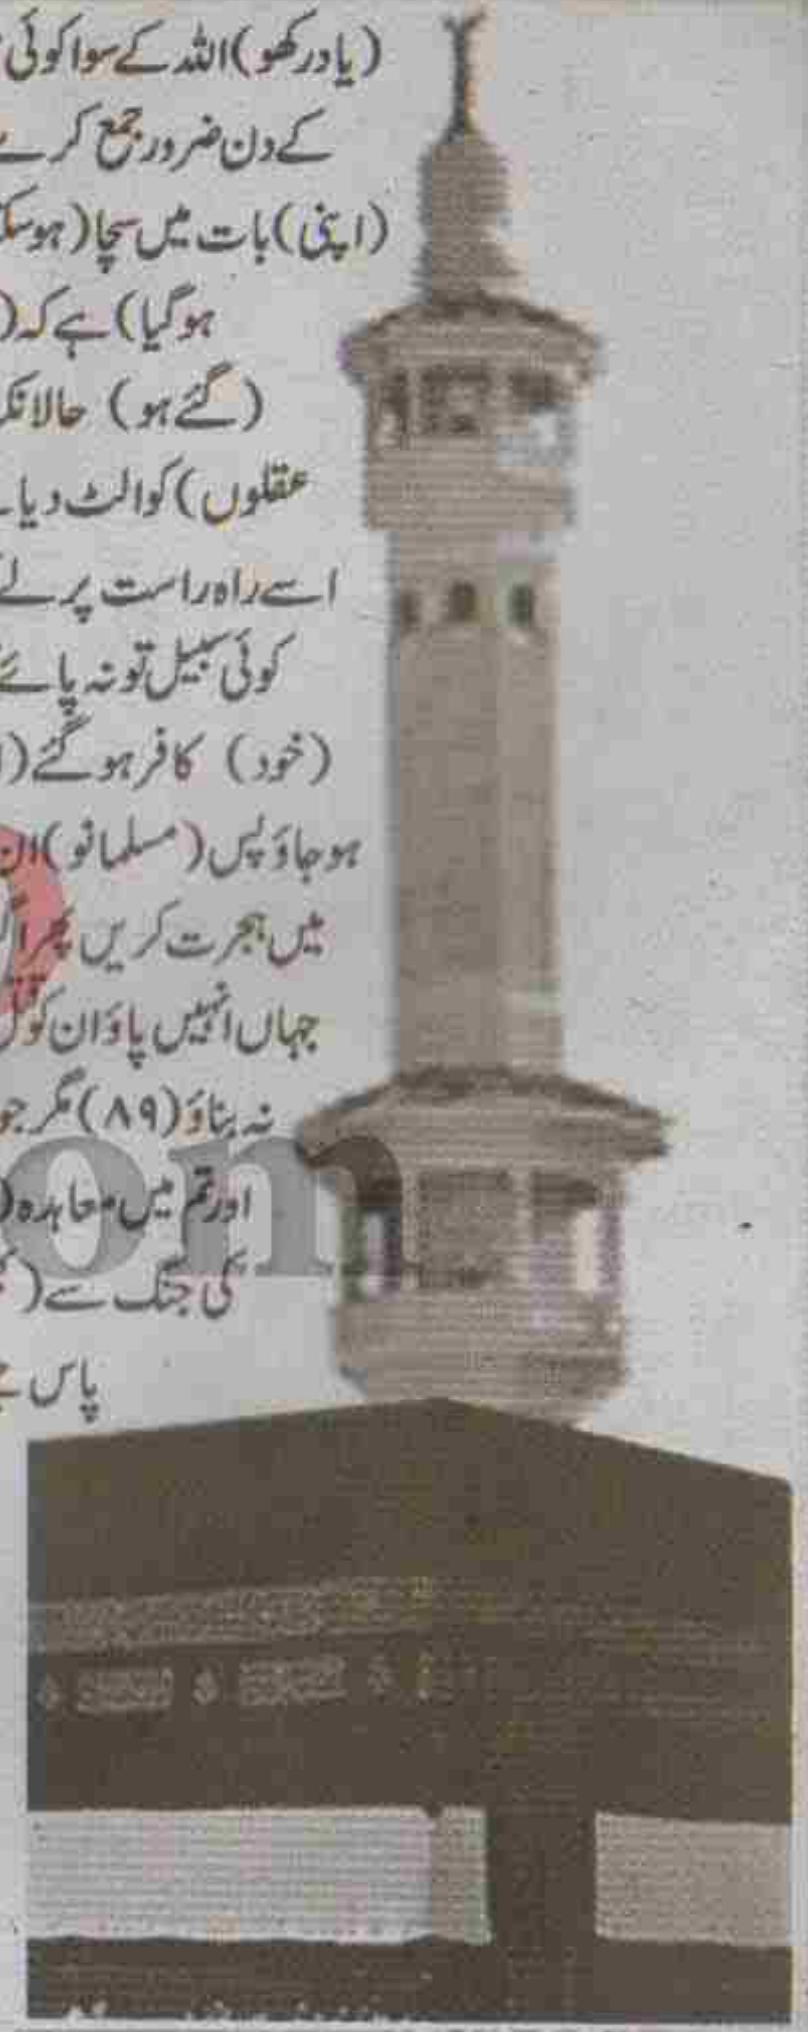 (یادرکھو) اللہ کے سوا کوئی
کے دن ضرور جمع کرے
(اپنی) بات میں سچا (ہوسکتا
ہوگیا) ہے کہ (
(گئے ہو) حالانکہ
عقلوں) کو الٹ دیا
اسے راہ راست پر لے
کوئی سبیل تو نہ پائے
(خود) کافر ہوگئے (
ہوجاؤ پس (مسلمانو) ان
میں ہجرت کریں پھر اگر
جہاں انہیں پاؤ ان کو قتل
نہ بناؤ (۸۹) مگر جو
اور تم میں معاہدہ (
کی جنگ سے (
پاس
om